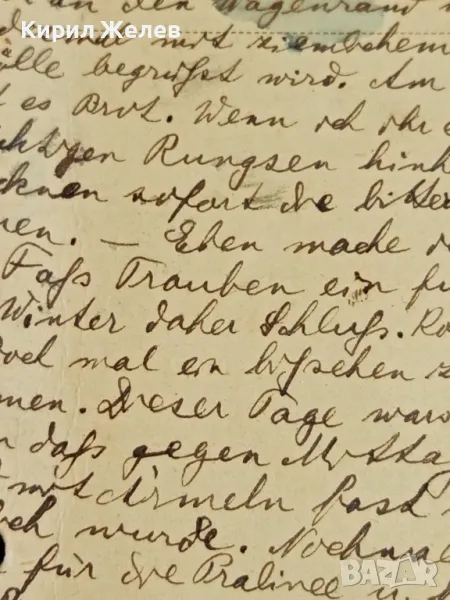 an den Wagenrand
Кирил Желев
mal mit ziembehem
ölle begrüßt wird. Am
t es Brot. Wenn ich ihr
chtigen Rungsen hinh
cknen sofort die bitter
nen. — Eben mache
Fass Trauben ein fü
Winter daher Schluss. Ko
doch mal en bisschen z
men. Dieser Tage ward
dass gegen Mittag
mit Ärmeln fast
och wurde. Nochmal
für die Pralinee u.
BAZAR